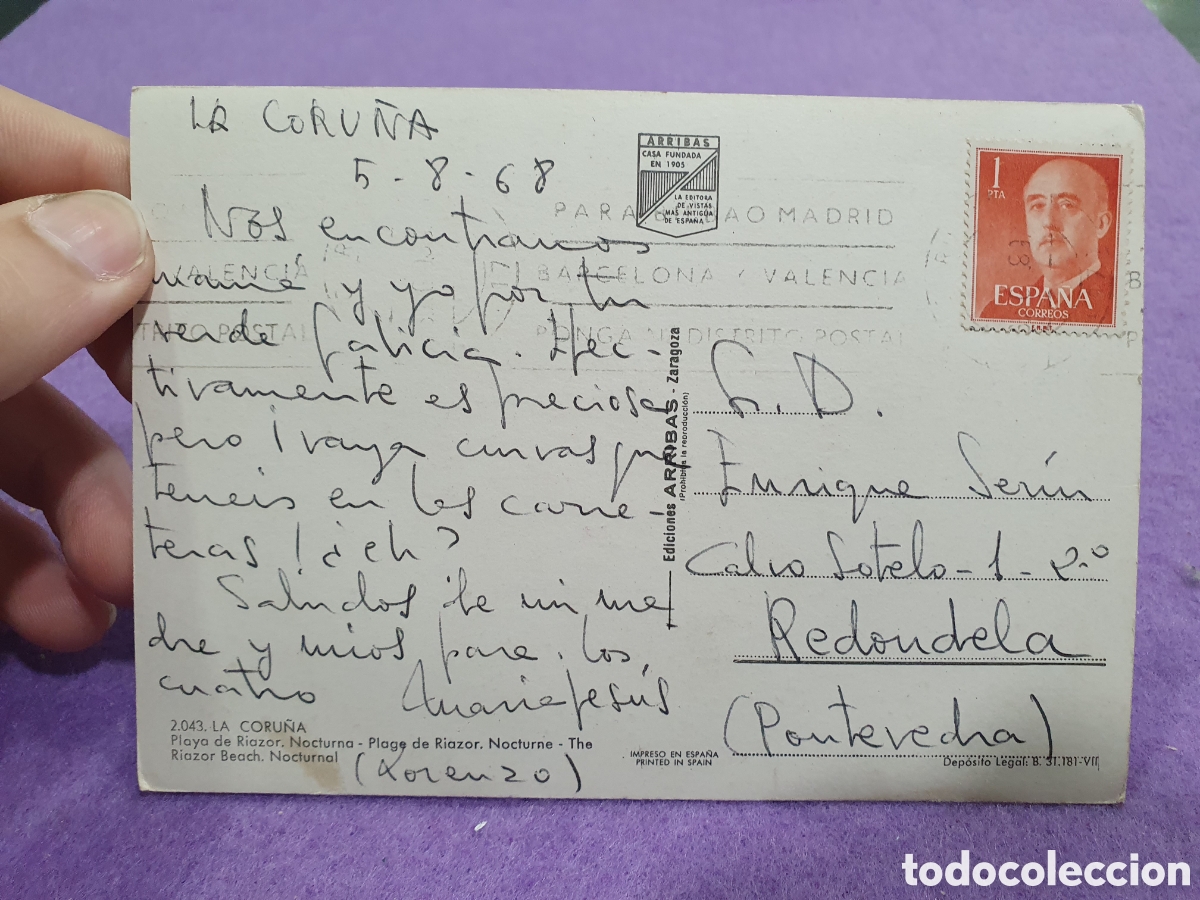 LA CORUÑA
5-8-68
Nos encontramos
mamá y yo por tu
verde Galicia. Efec-
tivamente es preciosa
pero ¡vaya curvas que
teneis en las carre-
teras! ¿eh?
Saludos de mi ma-
dre y mios para los
cuatro Mariajesús
(Lorenzo)
2.043. LA CORUÑA
Playa de Riazor. Nocturna - Plage de Riazor. Nocturne - The
Riazor Beach. Nocturnal
ARRIBAS
CASA FUNDADA
EN 1905
LA EDITORA
DE VISTAS
MAS ANTIGUA
DE ESPAÑA
Ediciones ARRIBAS - Zaragoza
(Prohibida la reproducción)
IMPRESO EN ESPAÑA
PRINTED IN SPAIN
PARA BILBAO MADRID
BARCELONA Y VALENCIA
PONGA Nº DISTRITO POSTAL
VALENCIA
POSTAL
1
PTA
ESPAÑA
CORREOS
S. D.
Enrique Serín
Calvo Sotelo-1-2º
Redondela
(Pontevedra)
Depósito Legal: B. 31.181-VII
todocoleccion